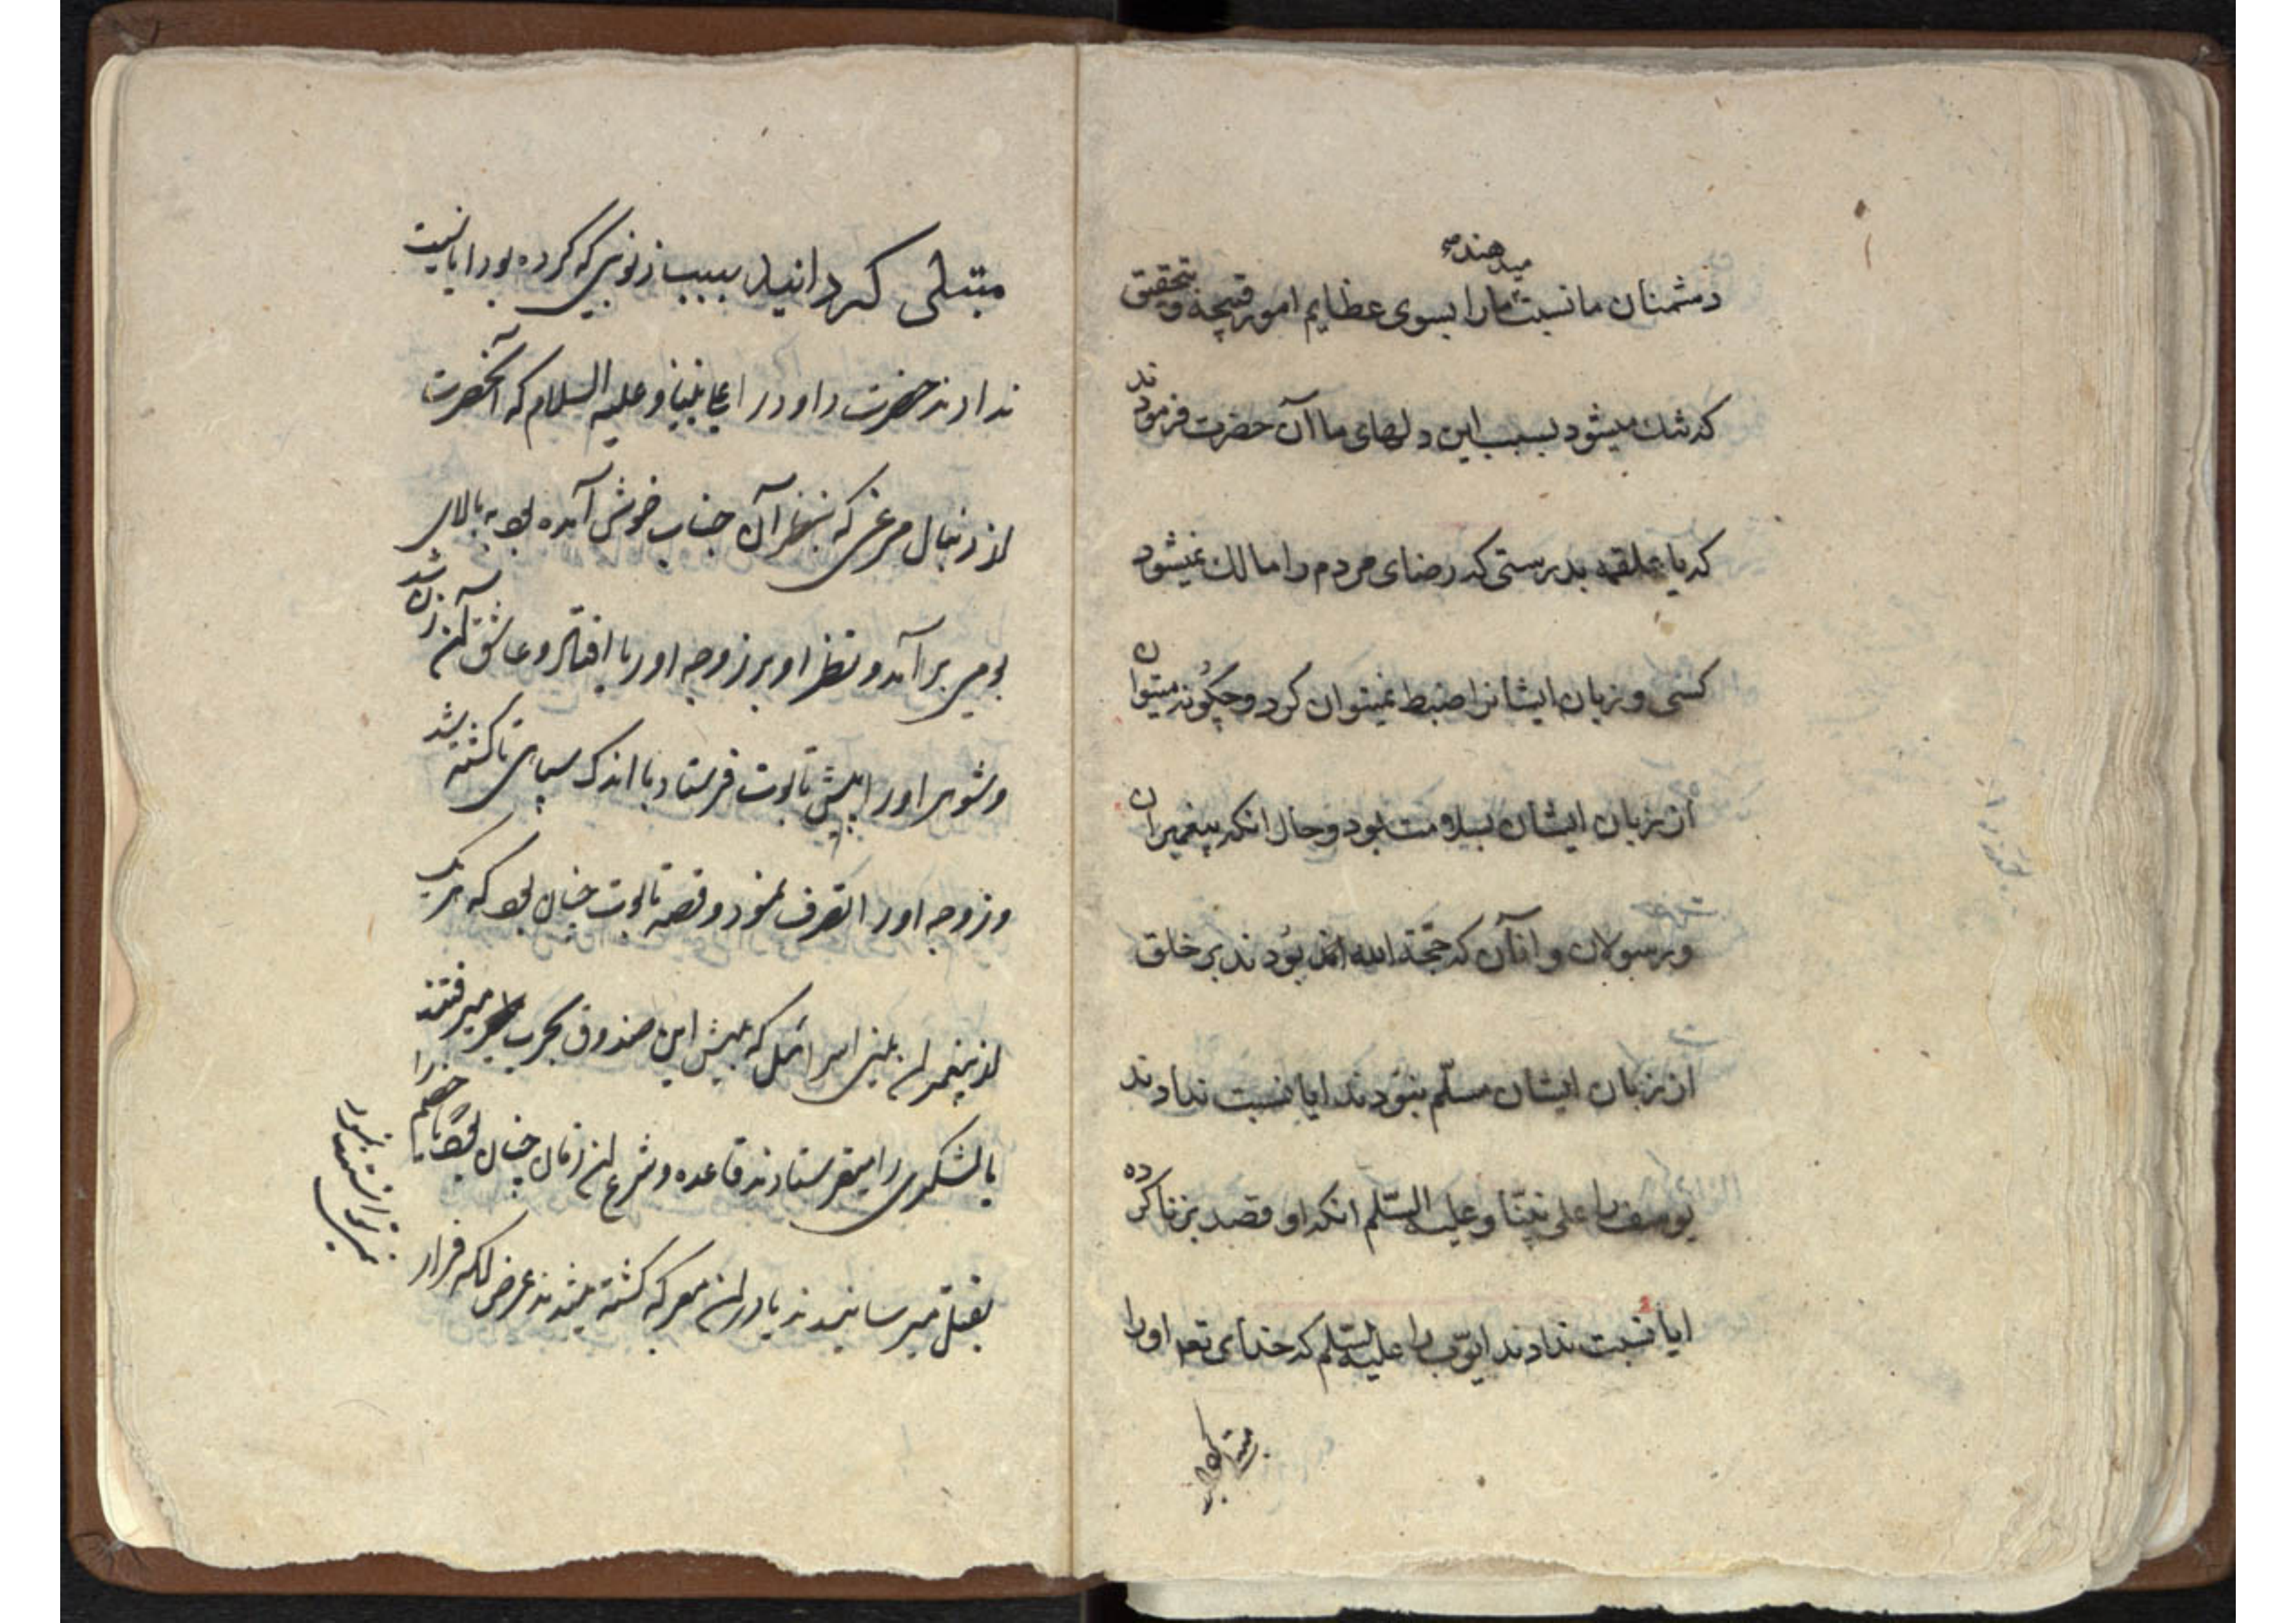 میدهند صح
دشمنان ما نسبت ما را بسوی عظایم امور قبیحه و بتحقیق
که تنك میشود بسبب این دلهای ما آن حضرت فرمودند
که یا علقمه بدرستی که رضای مردم را مالك نمیشود
کسی و زبان ایشانرا ضبط نمیتوان کرد و چکونه میتوان
از زبان ایشان بسلامت بود و حال انکه پیغمبران
و رسولان و انان که حجة الله بودند بر خلق
از زبان ایشان مسلّم نبودند ایا نسبت ندادند
یوسف را علی نبیّنا و علیه السّلم انکه او قصد زنا کرده
ایا نسبت ندادند ایّوب را علیه السّلم که خدای تعه او را
مبتلی کردانید
مبتلی کردانید بسبب ذنوبی که کرده بود ایا نسبت
ندادند حضرت داود را علی نبینا و علیه السلام که آنحضرت
از دنبال مرغی که بنظر آن جناب خوش آمده بود به بالای
بومی برآمد و نظر او بر زوجه اوریا افتاد و عاشق آن زن شد
و شوی او را به پیش تابوت فرستاد با اندک سپاهی تا کشته شد
و زوجه او را تصرف نمود و قصه تابوت چنان بود که هریک
از پیغمبران بنی اسرائیل که پیش این صندوق بحرب میرفتند
یا لشکری را میفرستادند قاعده و شرع آن زمان چنان بود تا خصم را
بقتل نمیرسانیدند یا در آن معرکه کشته میشدند غرض که فرار
نمیتوانستند نمود